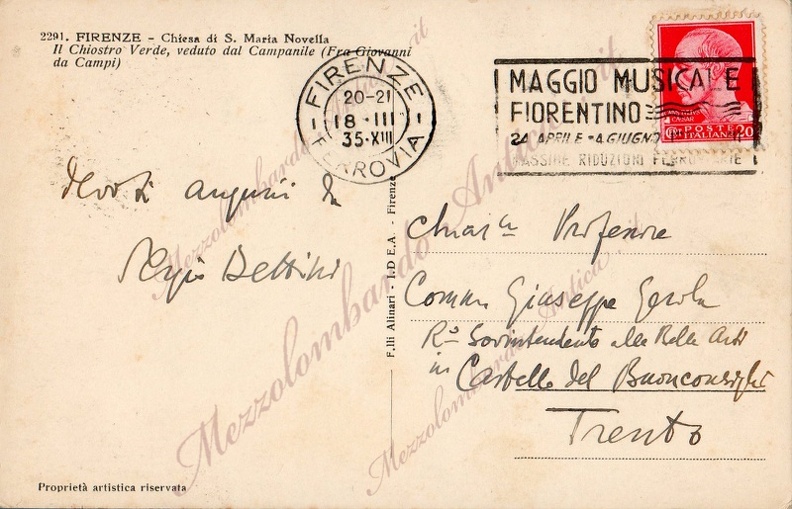 2291. FIRENZE - Chiesa di S. Maria Novella
Il Chiostro Verde, veduto dal Campanile (Fra Giovanni
da Campi)
FIRENZE
20-21
18 III
35-XIII
FERROVIA
MAGGIO MUSICALE
FIORENTINO
24 APRILE - 4 GIUGNO
MASSIME RIDUZIONI FERROVIARIE
CAESAR
POSTE
ITALIANE 20
auguri da
Sergio Bettini
F.lli Alinari - I.D.E.A. - Firenze
Professore
Comm Giuseppe Gerola
Ro Sovrintendente alle Belle Arti
in Castello del Buonconsiglio
Trento
Proprietà artistica riservata
Mezzolombardo Antica.it
Mezzolombardo Antica.it
Mezzolombardo Antica.it